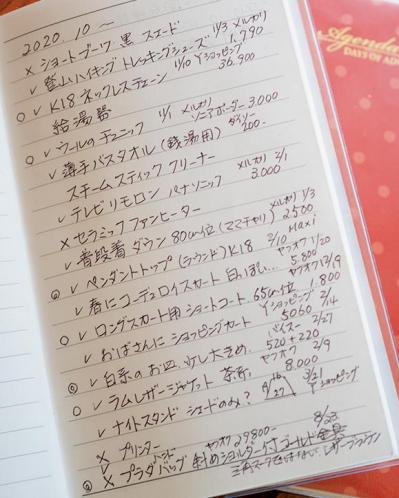 2020. 10 〜
× ショートブーツ・黒 スエード 11/3 メルカリ 1.790
✓ 登山ハイキング トレッキングシューズ
○ ✓ K18 ネックレスチェーン 11/10 Yショッピング 36.900
給湯器
○ ✓ ウールのチュニック 11/1 メルカリ ソニアボーダー 3.000
✓ 薄手バスタオル(銭湯用) ダイソー 200-
スチームスティッククリーナー
✓ テレビリモロン パナソニック メルカリ 2/1 3.000
× セラミックファンヒーター
✓ 普段着ダウン 80cm位(ママチャリ) メルカリ 1/3 2.500
◎ ✓ ペンダントトップ(ラウンド) K18 2/10 Maxi
✓ 春にコーデュロイスカート 白っぽい… ヤフオク 1/20 5.800
○ ✓ ロングスカート用 ショートコート 65cm位… ヤフオク 1.800
✓ おばさんに ショッピングカート Yショッピング 5060 2/14
◎ ✓ 白系のお皿 少し大きめ バイマー 2/27 520+220
○ ✓ ラムレザージャケット 茶系 ヤフオク 2/9 8.000
✓ ナイトスタンド シェードのみ? 3/21 Yショッピング
× プリンター
◎ × プラダ バッグ ヤフオク 29800- 斜めショルダー付 ゴールド 8/23
Agenda